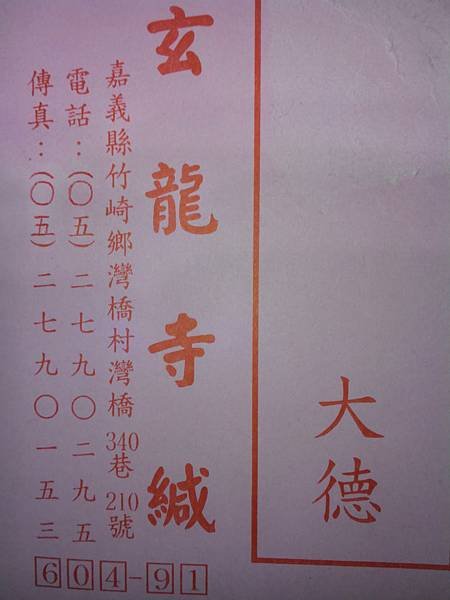 大德
玄龍寺緘
嘉義縣竹崎鄉灣橋村灣橋340巷210號
電話：(〇五)二七九〇二九五
傳真：(〇五)二七九〇一五三
604-91